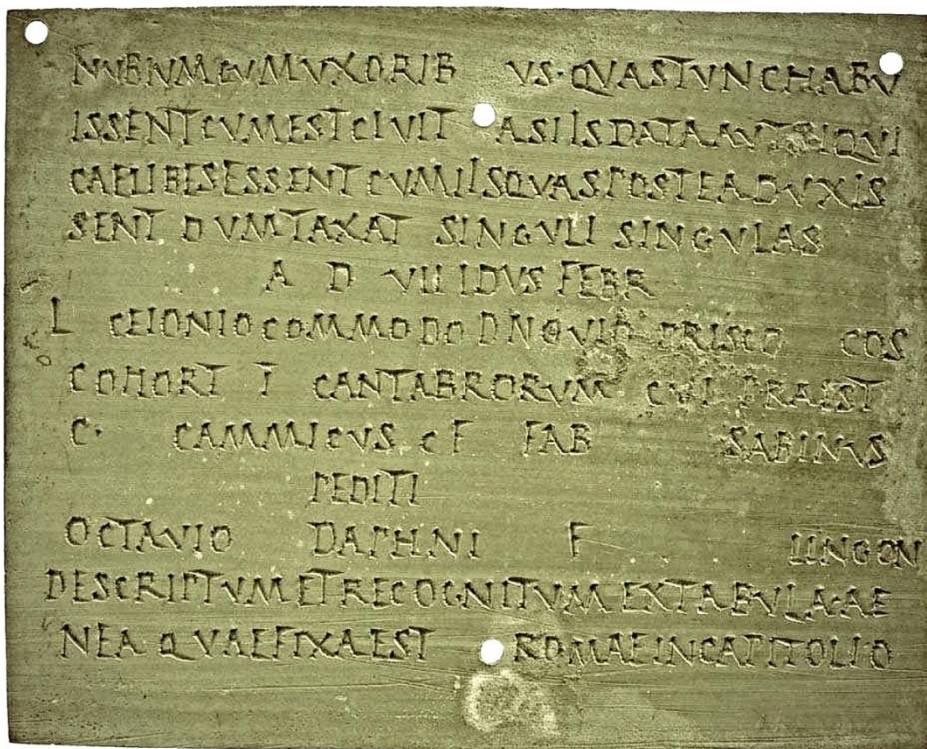 NUBIUM CUM UXORIB US · QUAS TUNC HABU
ISSENT CUM EST CIVIT AS IIS DATA AUT SI QUI
CAELIBES ESSENT CUM IIS QUAS POSTEA DUXIS
SENT DUMTAXAT SINGULI SINGULAS
A D VII IDUS FEBR
L CEIONIO COMMODO D NOVIO PRISCO COS
COHORT I CANTABRORUM CUI PRAEST
C · CAMMICUS C F FAB SABINUS
PEDITI
OCTAVIO DAPHNI F LINGON
DESCRIPTUM ET RECOGNITUM EX TABULA AE
NEA QUAE FIXA EST ROMAE IN CAPITOLIO